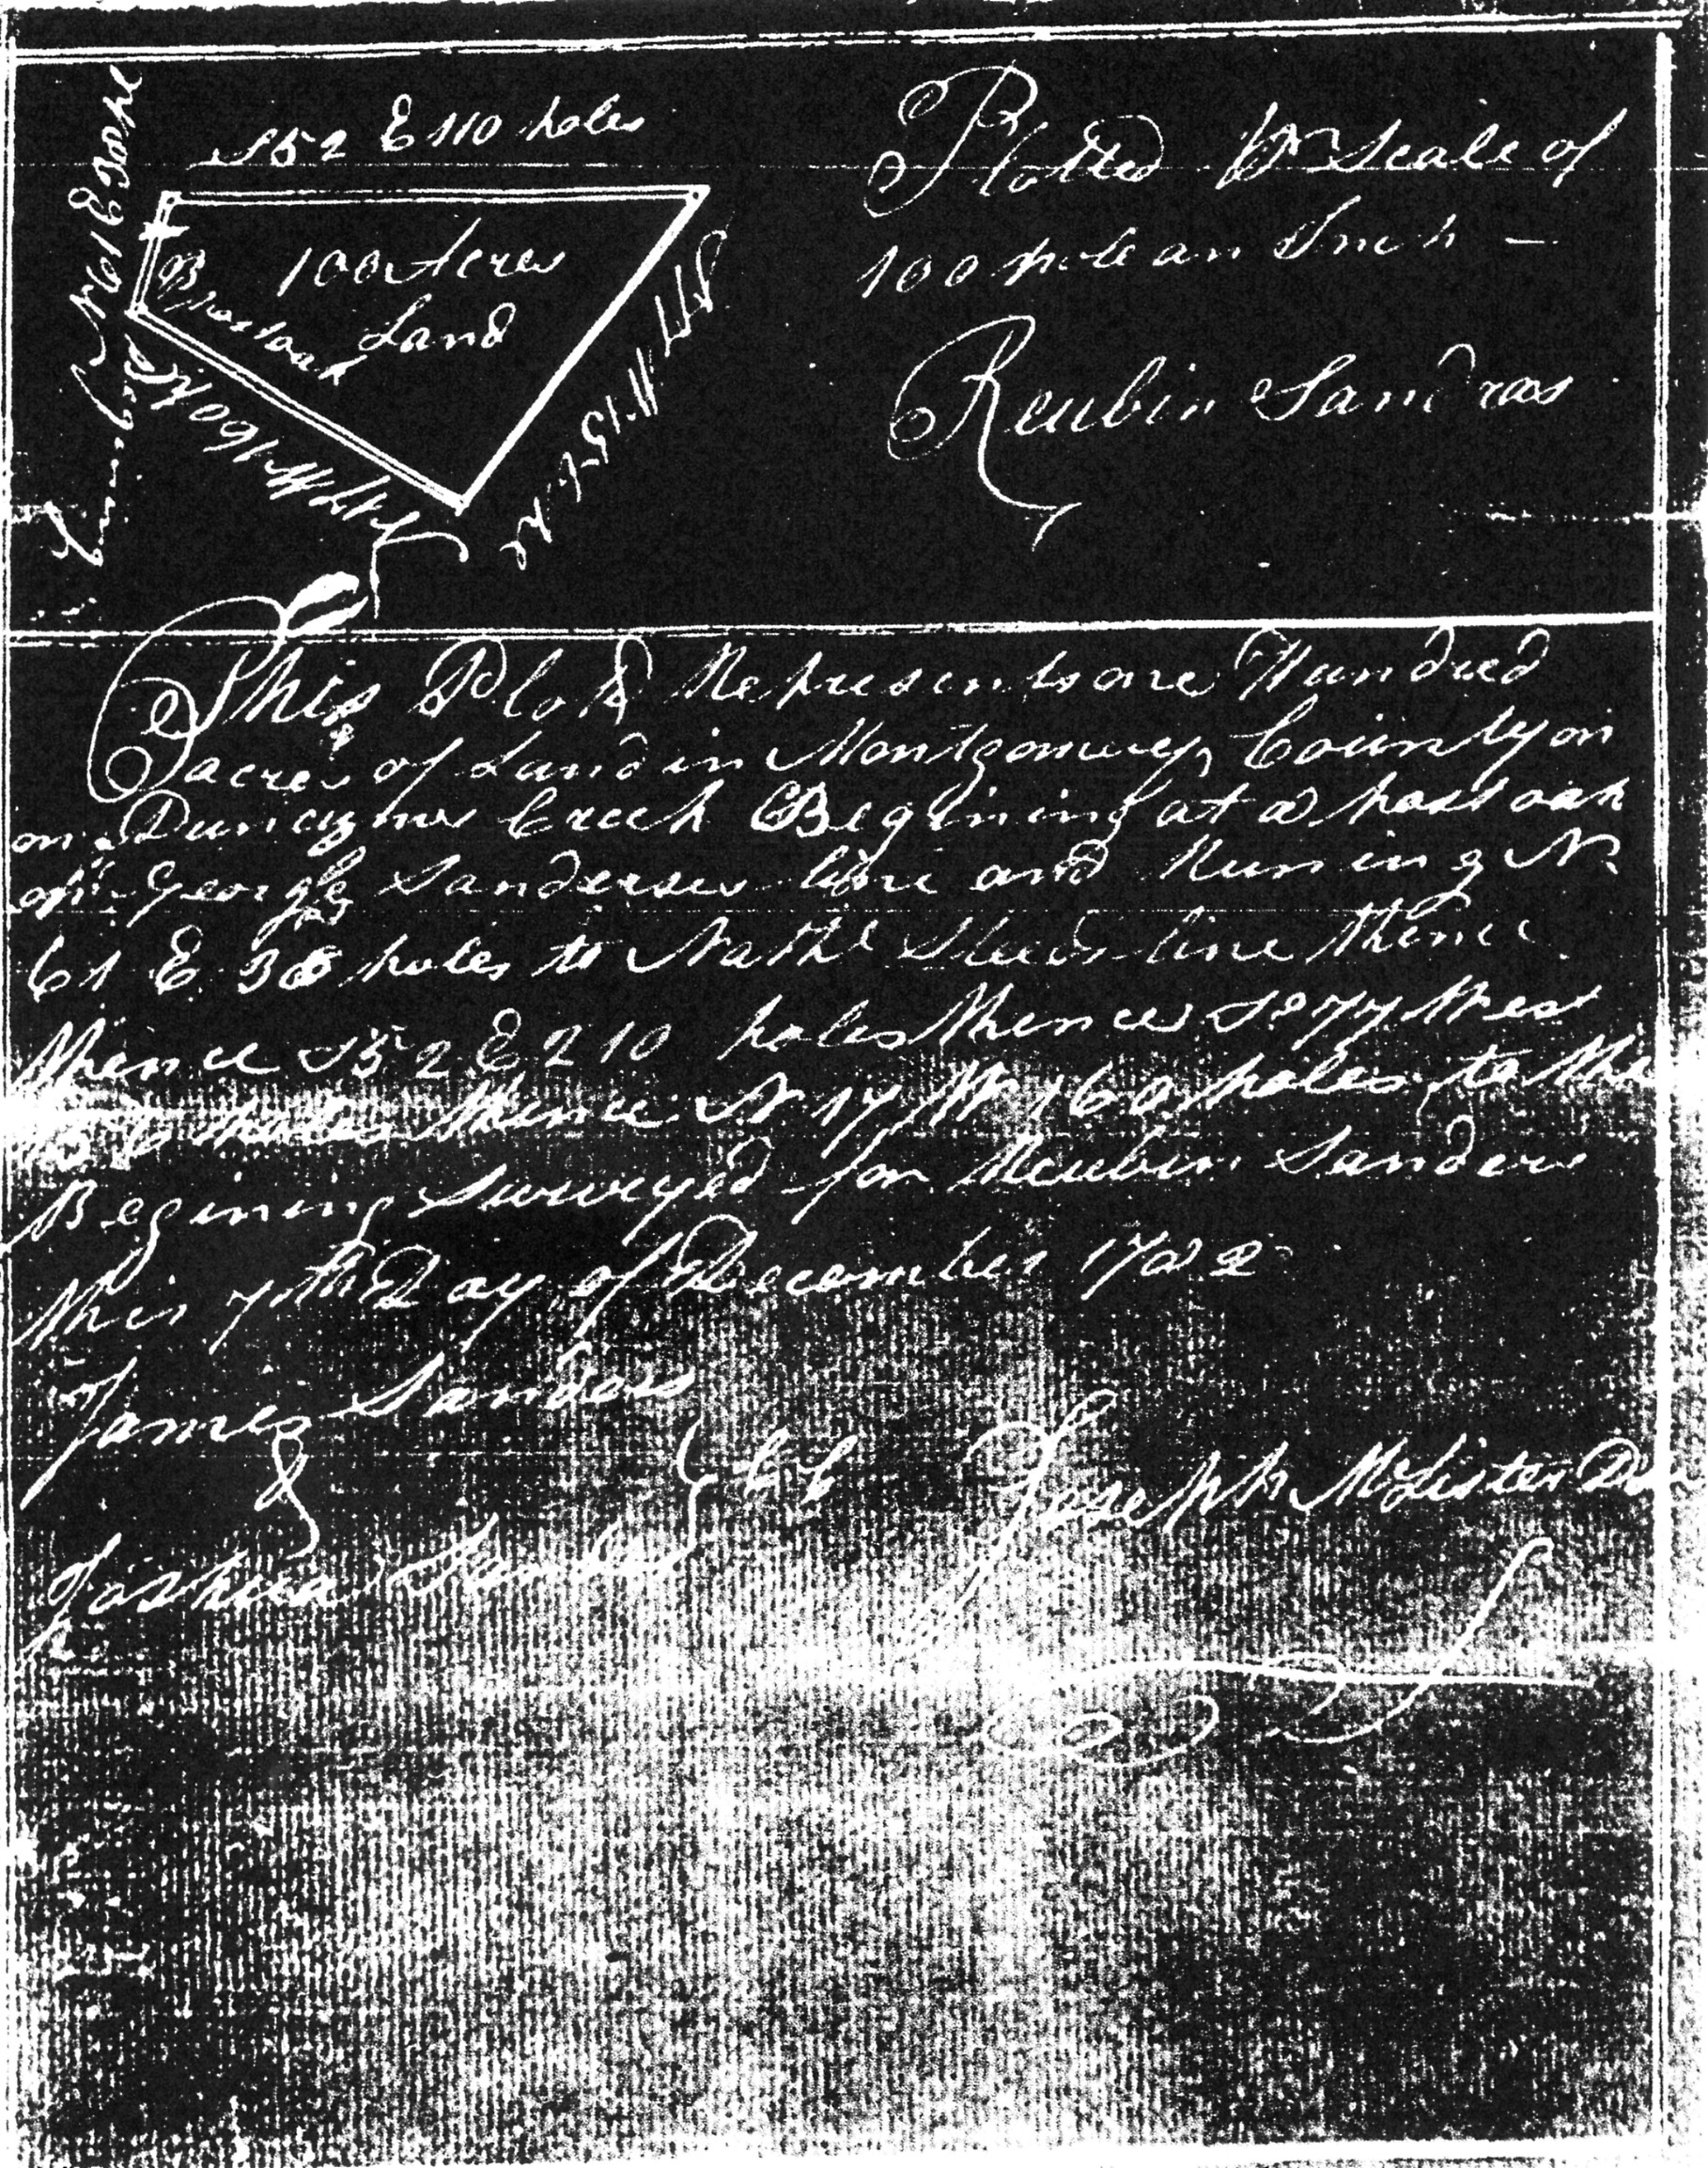 S 52 E 110 poles
N 61 E 30 pole
100 Acres
Land
B
postoak
S 77 W 156 po
N 17 W 160 po
Plotted pr Scale of
100 pole an Inch —
Reubin Sandras
This Plott Represents one Hundred
acres of Land in Montgomery County on
on Creek Begining at a post oak
on George Sanderses line and Runing N
61 E 30 poles to Nathl Steeds line thence
thence S 52 E 210 poles thence So 77 Wes
poles thence N 17 W 160 poles to the
Begining Surveyed for Reubin Sanders
this 7th Day of December 1782
James Sanders
C C
Joseph McLister
Joshua Sanders